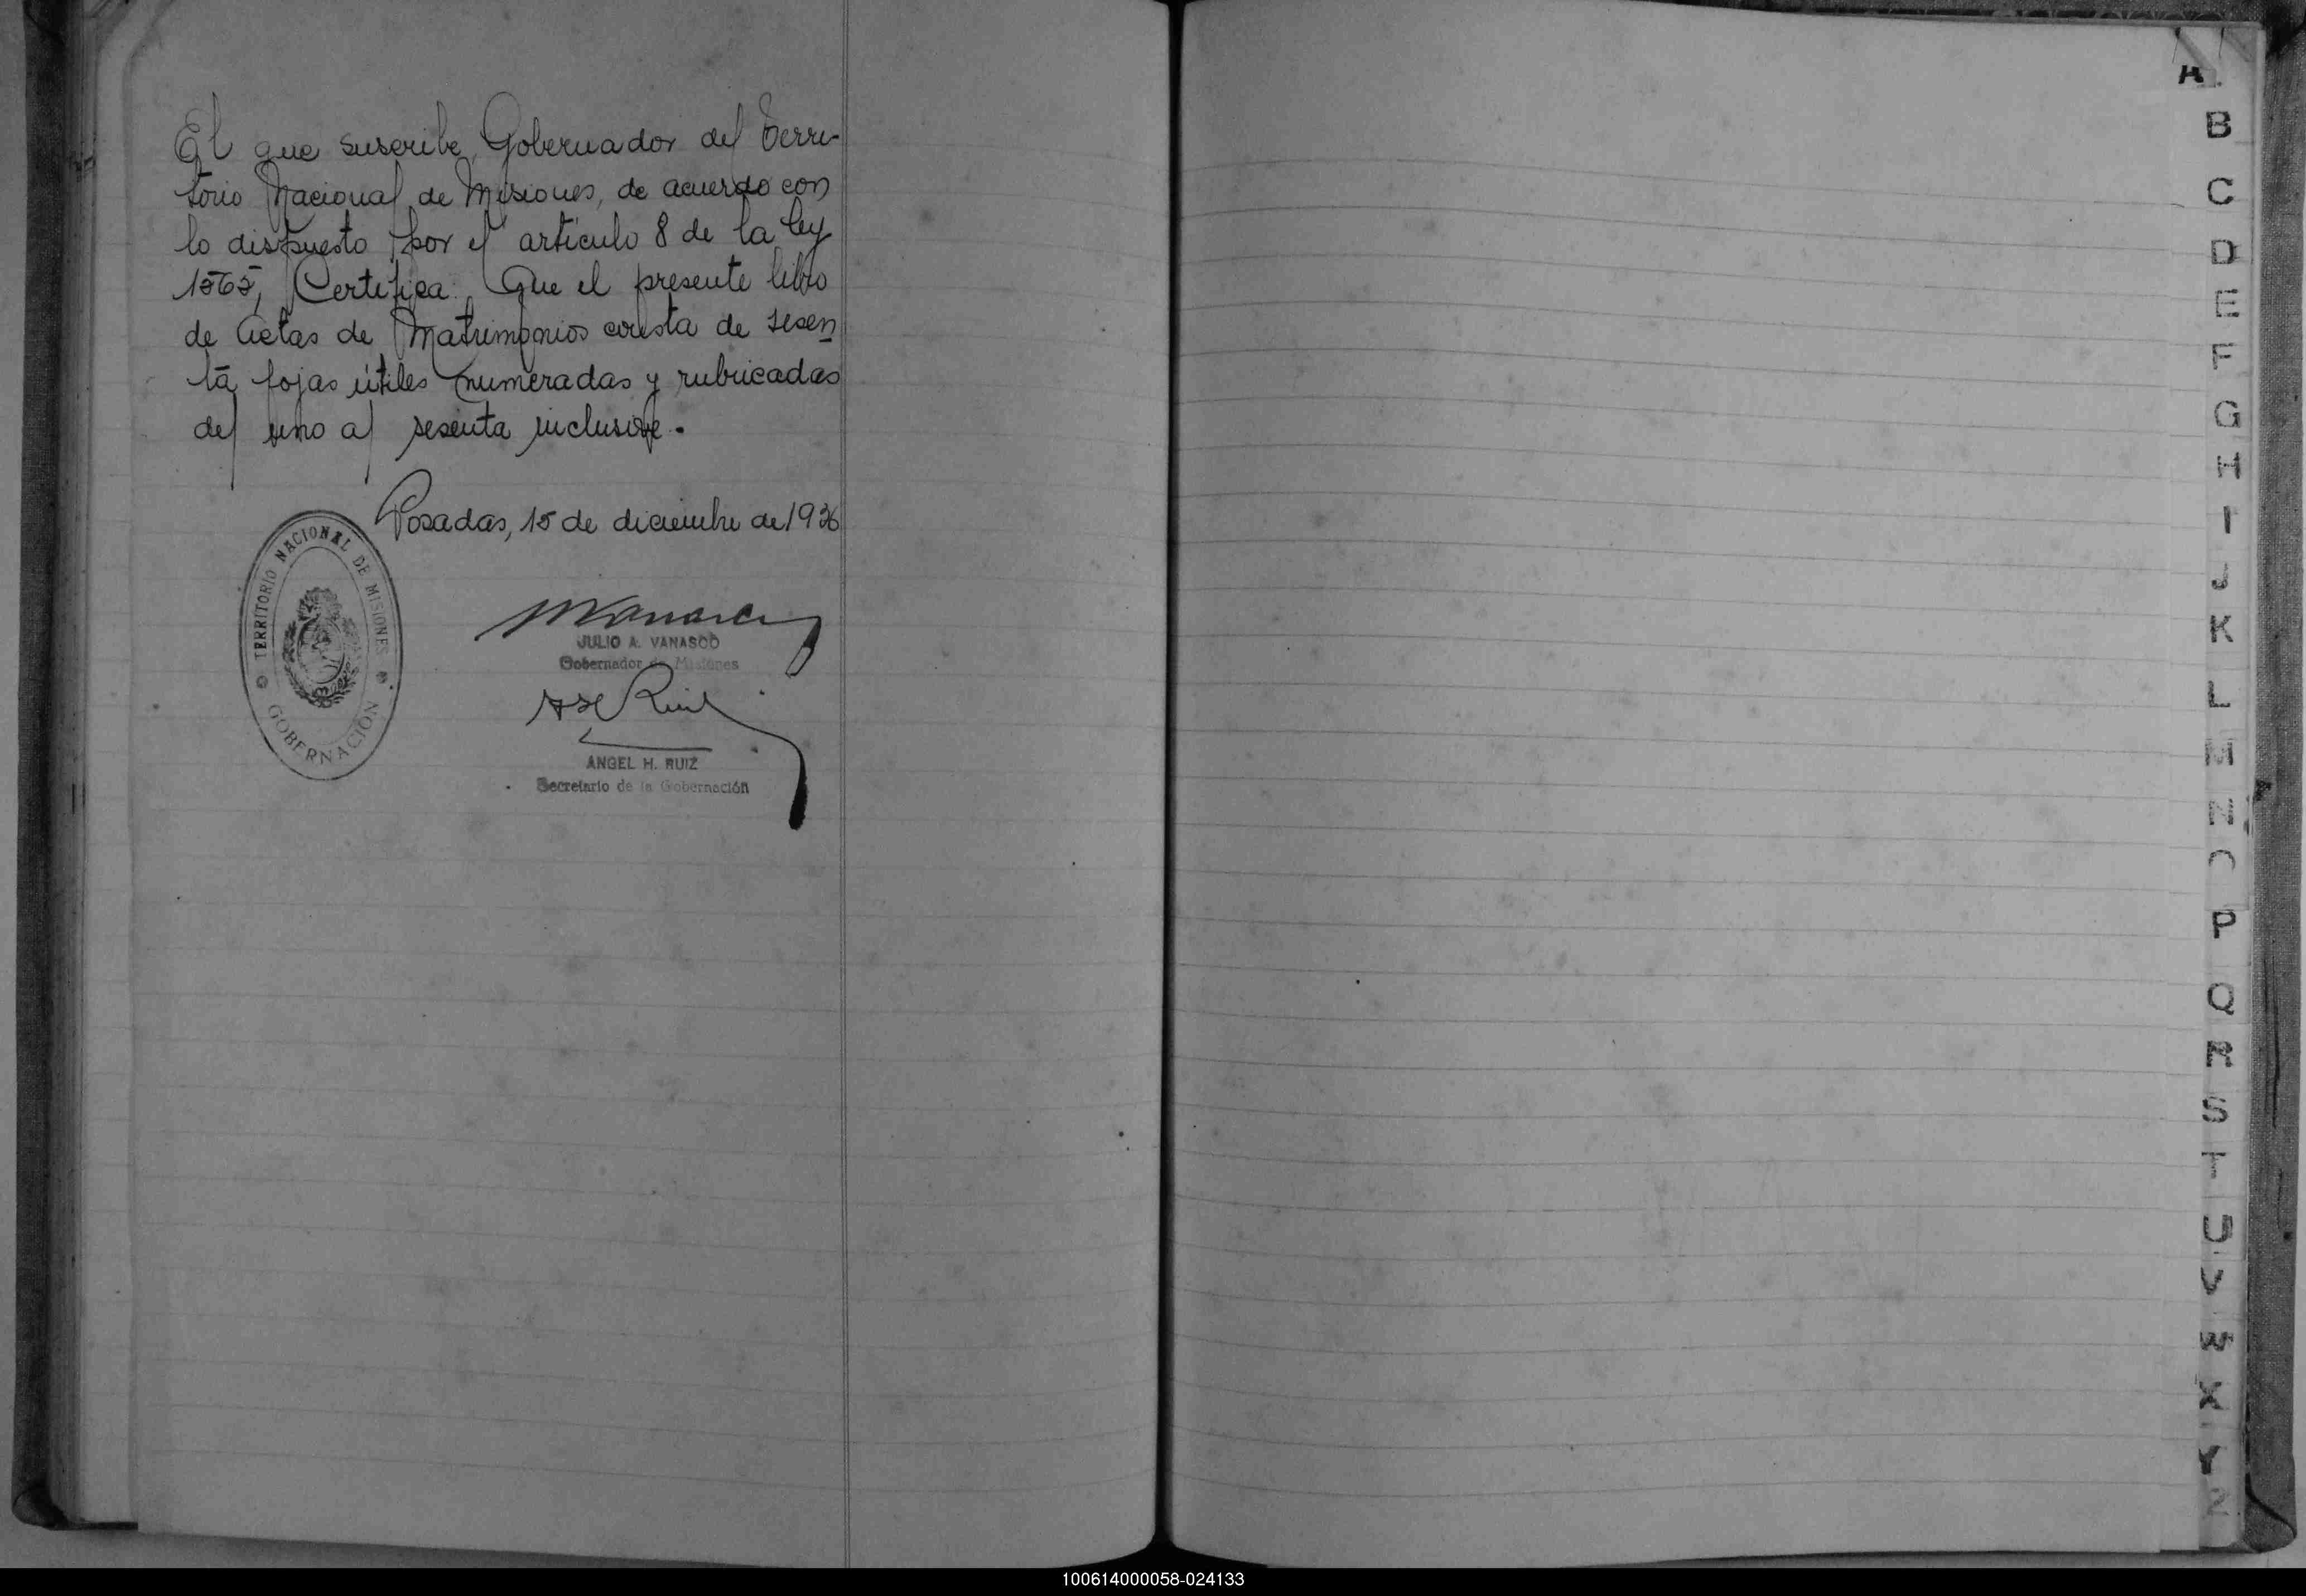 El que suscribe, Gobernador del Terri-
torio Nacional de Misiones, de acuerdo con
lo dispuesto por el artículo 8 de la ley
1565, Certifica: Que el presente libro
de Actas de Matrimonios consta de sesen
ta fojas útiles numeradas y rubricadas
del uno al sesenta inclusive.
Posadas, 15 de diciembre de 1936
TERRITORIO NACIONAL DE MISIONES
GOBERNACIÓN
JULIO A. VANASCO
Gobernador de Misiones
A H Ruiz
ANGEL H. RUIZ
Secretario de la Gobernación
A
B
C
D
E
F
G
H
I
J
K
L
M
N
O
P
Q
R
S
T
U
V
W
X
Y
Z
100614000058-024133